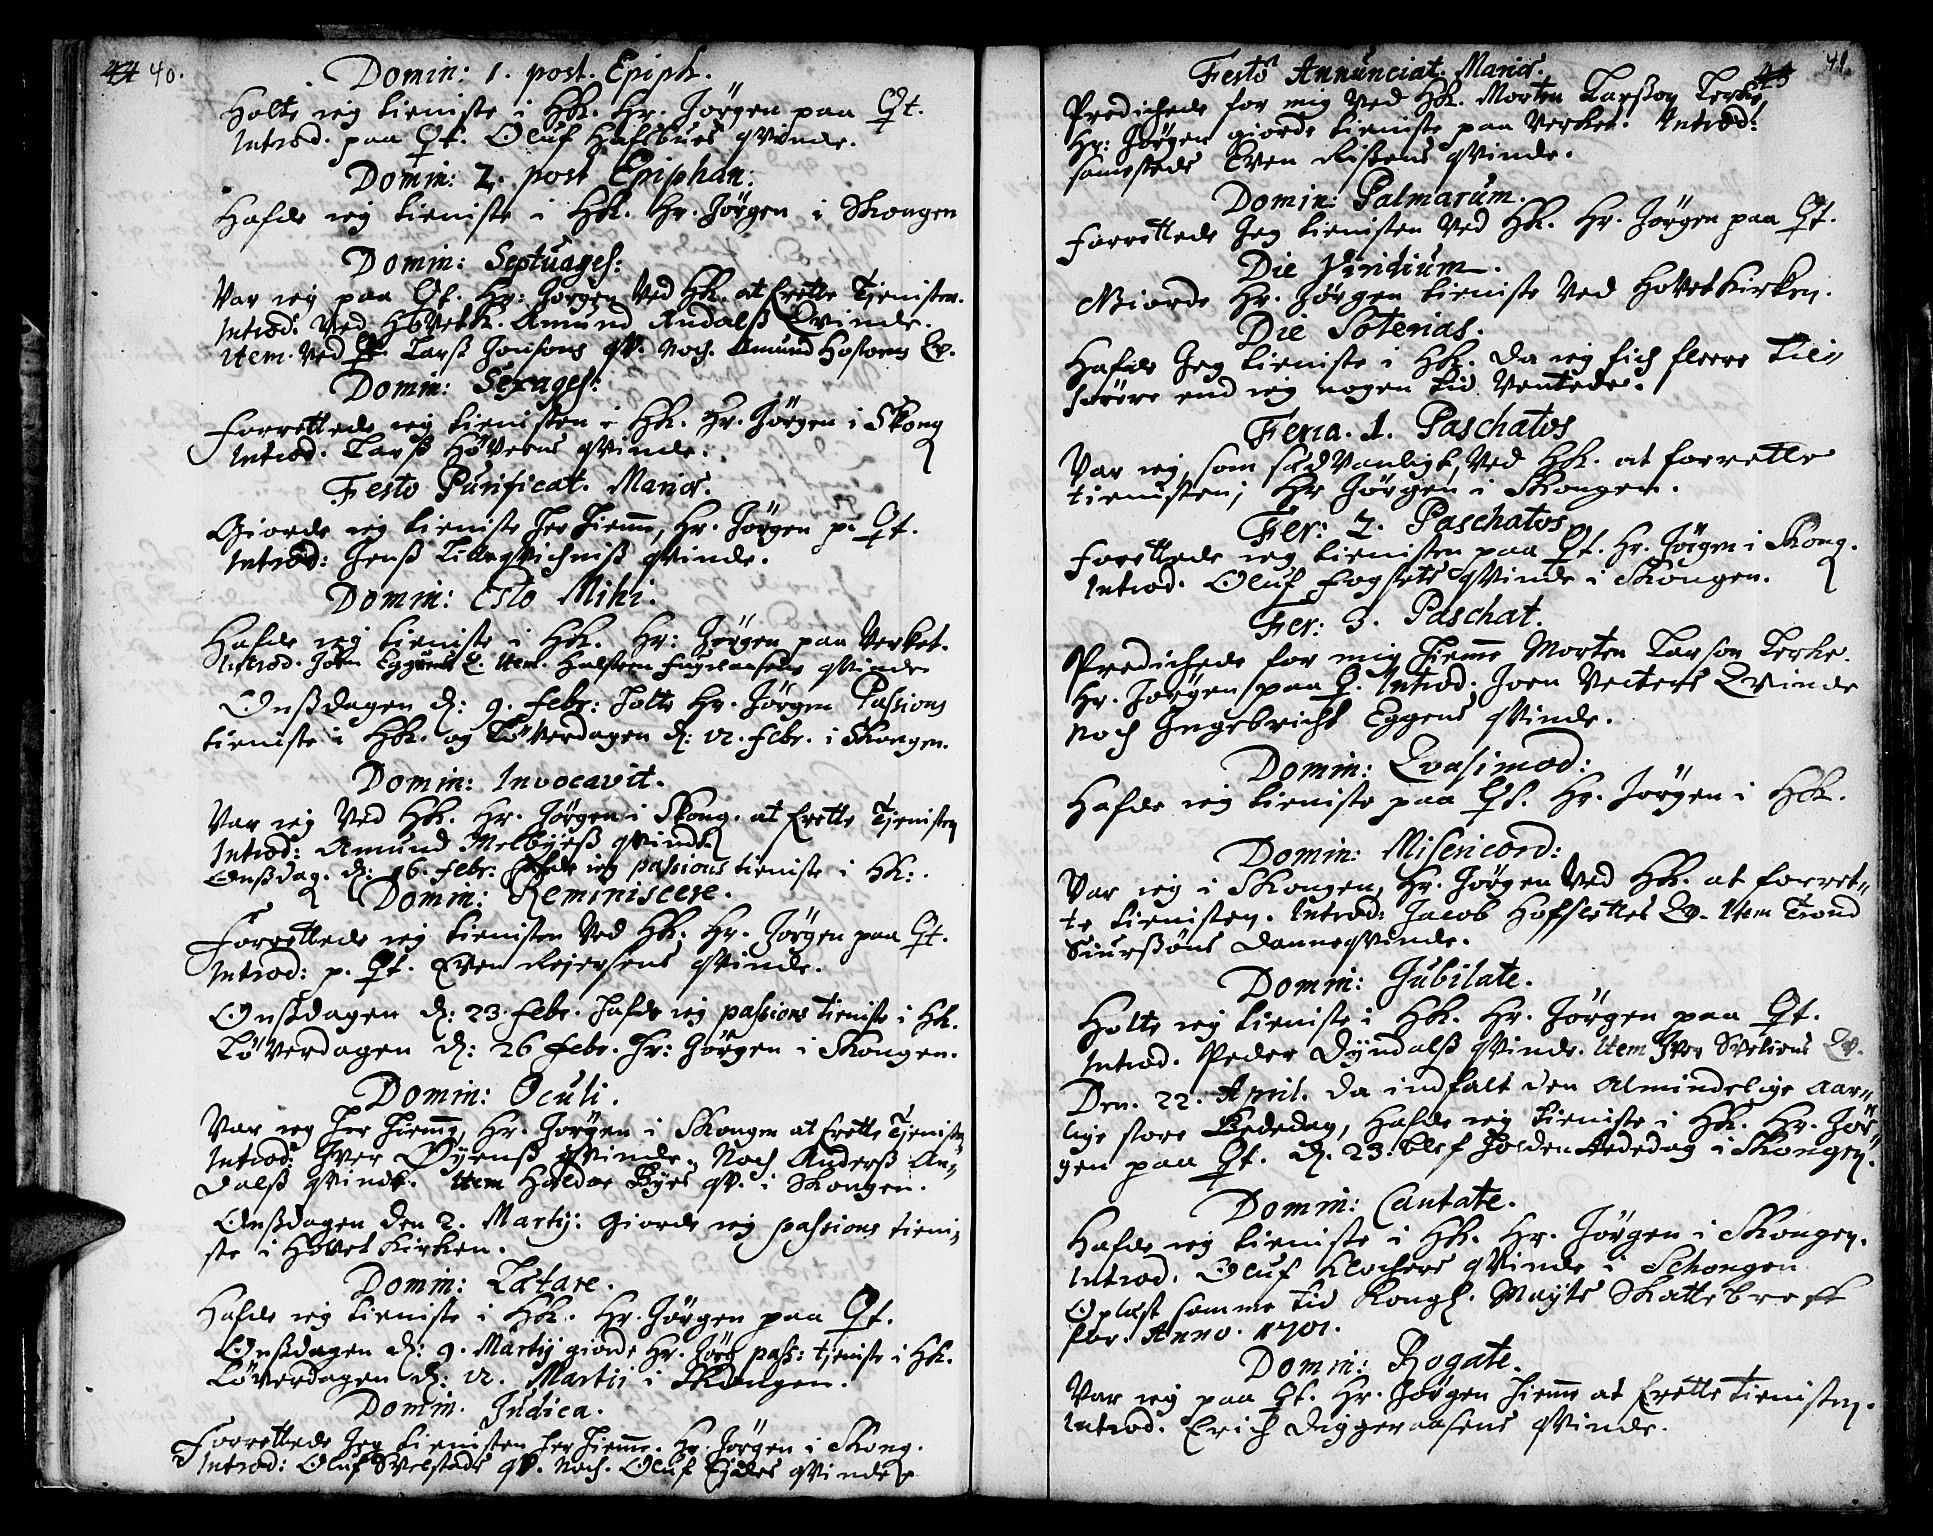 40.
Domin: 1. post. Epiph.
Holte ieg tieniste i HK. Hr. Jörgen paa Qt.
Introd. paa Qt. Oluf Hafsbues qvinde.
Domin: 2. post Epiphan:
Hafde ieg tieniste i HK. Hr. Jörgen i Skougen
Domin: Septuages:
Var ieg paa Qt. Hr: Jörgen Ved HK. at forette Tjenisten.
Introd: Ved HovetK. Amund Audalß Qvinde.
item. Ved Qt. Larß Jonsøns qv. noch. Amund Hostoens Qv.
Domin: Sexages:
Forrettede ieg tienisten i HK. Hr. Jörgen i Skoug
Introd. Larß Höveens qvinde.
Festo Purificat. Mariæ.
Giorde ieg tieniste her hiemme, Hr. Jörgen p. Qt.
Introd: Jenß qvinde.
Domin: Esto Mihi.
Hafde ieg tieniste i HK. Hr: Jörgen paa Verket.
Introd. Joen Eggens Q. Item. Halsteen qvinde
Onßdagen d: 9. Febr: holte Hr. Jörgen Passions
tieniste i HK. og Löverdagen d: 12. Febr. i Skougen.
Domin: Invocavit.
Var ieg Ved HK. Hr. Jörgen i Skoug. at forette Tjenisten
Introd: Amund Melbyeß qvinde
Onßdag. d: 16. Febr: hafde ieg passions tieniste i HK:.
Domin: Reminiscere.
Forrettede ieg tienisten Ved HK, Hr. Jörgen paa Qt.
Introd: p. Qt. Even Reiersens qvinde.
Onßdagen d: 23. Febr. hafde ieg passions tieniste i HK.
Löverdagen d: 26 Febr. Hr: Jörgen i Skougen.
Domin: Oculi.
Var ieg her hiemme, Hr. Jörgen i Skougen at forette Tjenisten
Introd: Iver Öyenß qvinde. Noch Anderß An-
dalß qvinde. Item Haldoe Byes qv. i Skougen.
Onßdagen den 2. Martij: Giorde ieg passions tieni-
ste i Hovet Kirken.
Domin: Lætare.
Hafde ieg tieniste i HK. Hr. Jörgen paa Qt.
Onßdagen d: 9. Martij giorde Hr. Jörg pass: tjeniste i HK.
Löverdagen d: 12. Martij i Skougen.
Domin. Judica.
Forrettede Jeg tienisten her hiemme. Hr. Jörgen i Skoug.
Introd: Oluf Svelstads qv. noch. Oluf qvinde
41.
Festo Annunciat. Mariæ.
Predichede for mig Ved HK. Morten Larßøn Lerke,
Hr: Jörgen giorde tieniste paa Verket. Introd:
samesteds Even Ristens qvinde.
Domin: Palmarum.
Forrettede Jeg tienisten Ved HK. Hr. Jörgen paa Qt.
Die Viridium.
Giorde Hr. Jörgen tieniste Ved Hovet Kirken.
Die Soterias.
Hafde Jeg tieniste i HK. da ieg fich fleere Til-
hørere end ieg nogen tid Ventede.
Feria. 1. Paschatos
Var ieg, som sædvanligt, Ved HK. at forrette
tienisten; Hr Jörgen i Skougen.
Fer: 2. Paschatos
Forettede ieg tienisten paa Qt. Hr. Jörgen i Skoug.
Introd. Oluf Fogstets qvinde i Skougen.
Fer: 3. Paschat.
Predichede for mig hiemme Morten Larson Lerke.
Hr. Jörgen paa Q. Introd; Joen Vecters Qvinde
noch Ingebricht Eggens qvinde.
Domin: Qvasimod:
Hafde ieg tieniste paa Qt. Hr. Jörgen i HK.
Domin: Misericord:
Var ieg i Skougen, Hr. Jörgen Ved HK. at forret-
te tienisten. Introd: Jacob Hofslettes Qv. Item Trond
Siurßöns Danneqvinde.
Domin: Jubilate.
Holte ieg tieniste i HK. Hr. Jörgen paa Qt.
Introd. Peder Dyndalß qvinde. Item Iver Sveliens Qv.
Den. 22. April. da indfalt den Almindelige Aar-
lige store Bededag, Hafde ieg tieniste i HK. Hr. Jör-
gen paa Qt. d. 23. blef holden Bededag i Skougen.
Domin: Cantate.
Hafde ieg tieniste i HK. Hr. Jörgen i Skougen.
Introd. Oluf Klochers qvinde i Schougen
Oplæst samme tid Kongl. Mayts Skattebreff
for. Anno. 1701.
Domin: Rogate.
Var ieg paa Qt. Hr. Jörgen hiemme at forette tienisten.
Introd. Erich Diggeraasens qvinde.